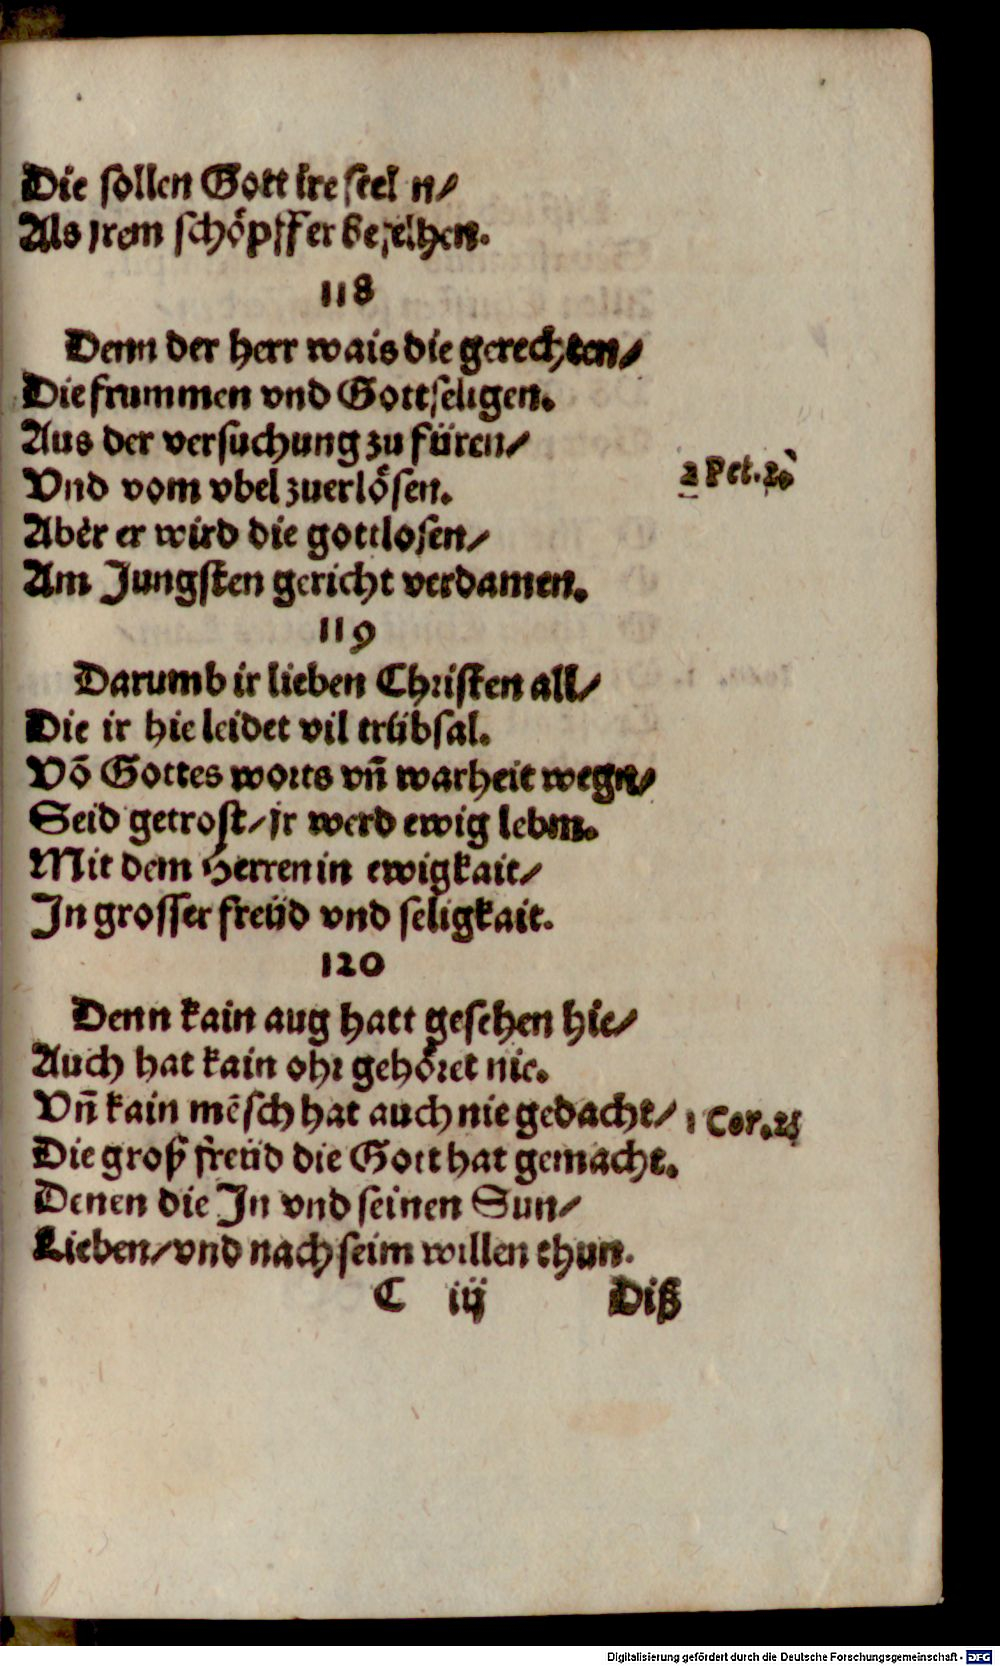 Die sollen Gott ire seel n/
Als jrem schöpffer befelhen.
118
Denn der herr wais die gerechten/
Die frummen vnd Gottseligen.
Aus der versuchung zu füren/
Vnd vom vbel zuerlösen.
2 Pet. 2.
Aber er wird die gottlosen/
Am Jungsten gericht verdamen.
119
Darumb ir lieben Christen all/
Die ir hie leidet vil trübsal.
Võ Gottes worts vñ warheit wegn/
Seid getrost/ jr werd ewig lebm.
Mit dem Herren in ewigkait/
In grosser freüd vnd seligkait.
120
Denn kain aug hatt gesehen hie/
Auch hat kain ohr gehöret nie.
Vñ kain mẽsch hat auch nie gedacht/
1 Cor. 2
Die groß freüd die Gott hat gemacht.
Denen die In vnd seinen Sun/
Lieben/ vnd nach seim willen thun.
C iij Diß
Digitalisierung gefördert durch die Deutsche Forschungsgemeinschaft - DFG